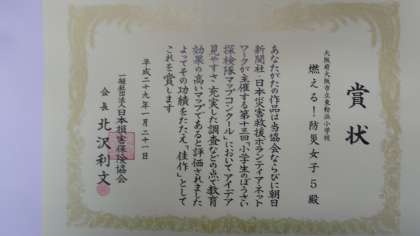 賞状
大阪府大阪市立東粉浜小学校
燃える！防災女子5殿
あなたがたの作品は当協会ならびに朝日
新聞社・日本災害救援ボランティア・ネット
ワークが主催する第十三回「小学生のぼうさい
探検隊マップコンクール」においてアイデア
見やすさ、充実した調査などの点で教育
効果の高いマップであると評価されました
よってその功績をたたえ、「佳作」として
これを賞します
平成二十九年一月二十一日
一般社団法人日本損害保険協会
会長 北沢利文